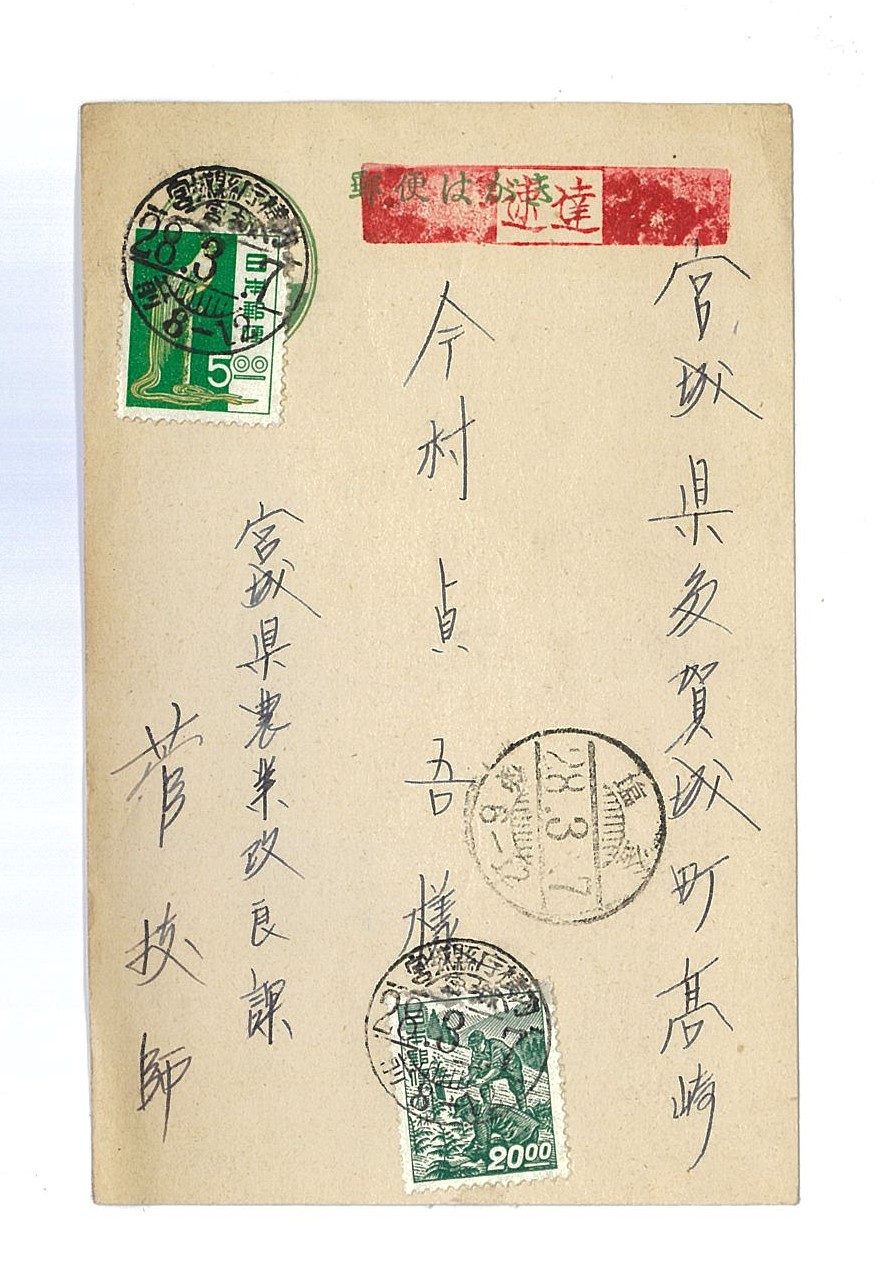 郵便はがき
速達
宮城県多賀城町高崎
今村貞吾様
宮城県農業改良課
菅技師
日本郵便
500
28.3.7
8-12
28.3.7
6-12
日本郵便
2000
28.3.7